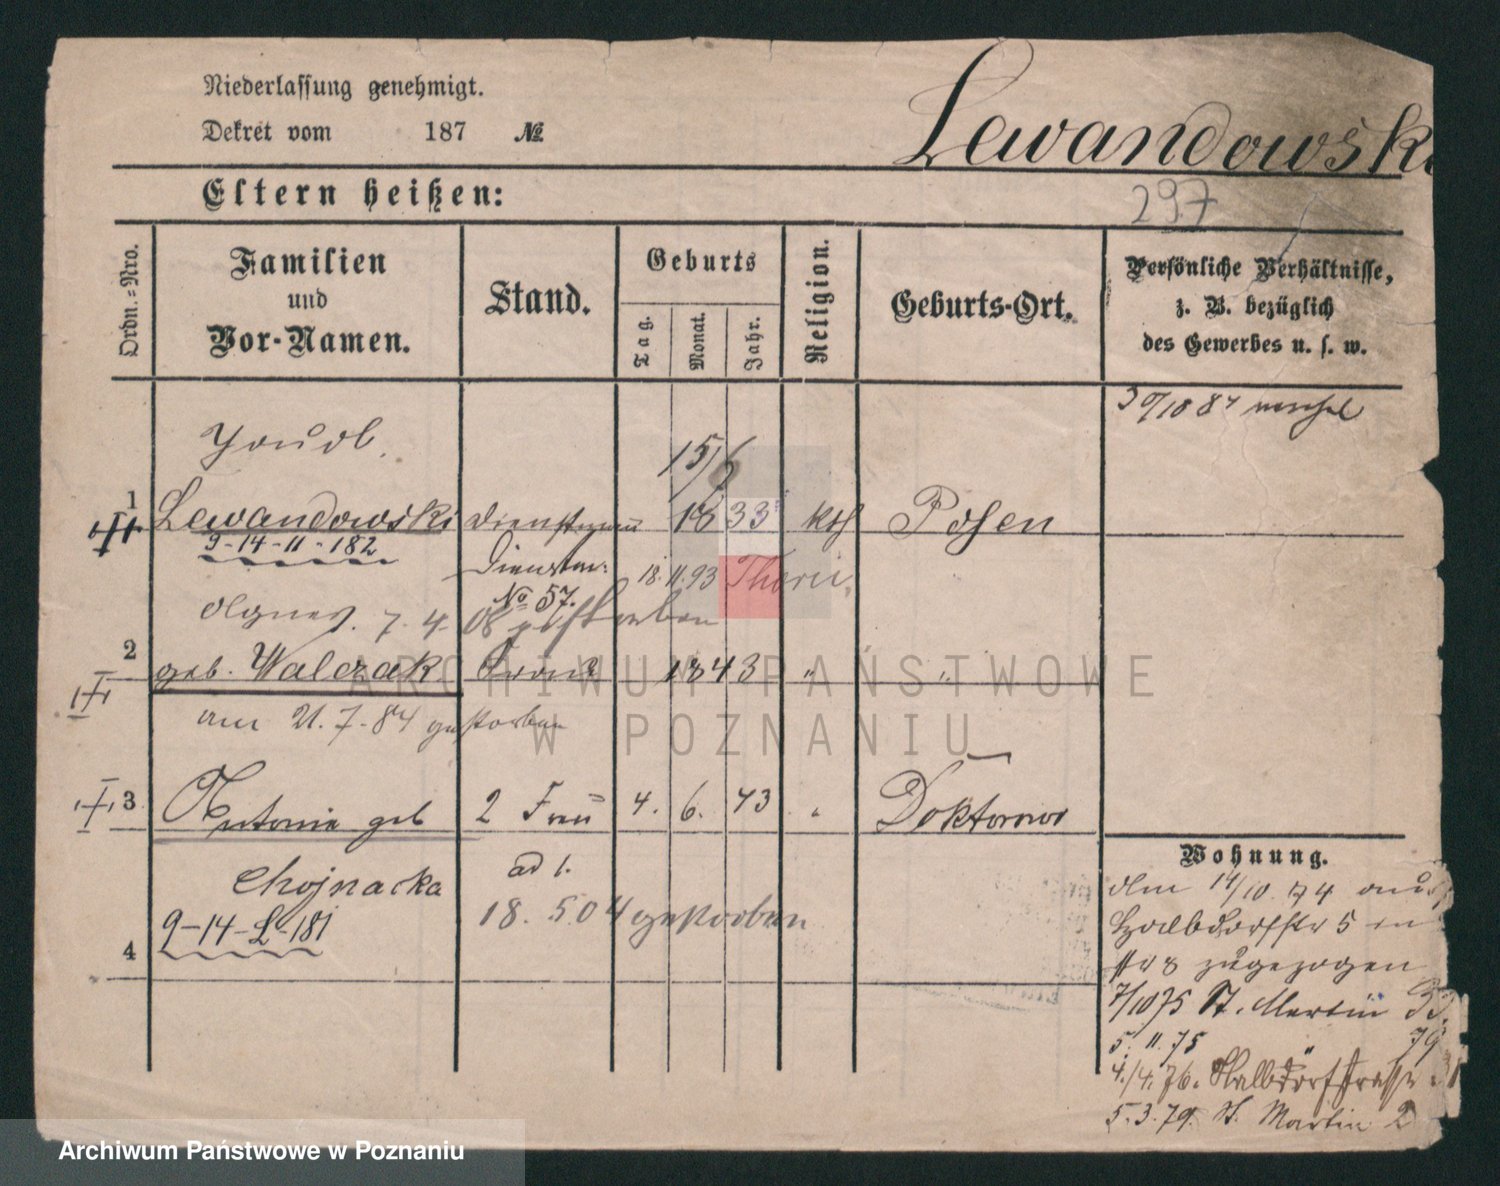 Niederlassung genehmigt.
Dekret vom 187 №
Lewandowski
Eltern heißen:
297
Ordn.=Nro.
Familien
und
Vor-Namen.
Stand.
Geburts
Tag.
Monat.
Jahr.
Religion.
Geburts-Ort.
Persönliche Verhältnisse,
z. B. bezüglich
des Gewerbes u. s. w.
15/
1
Lewandowski 1833 kth Posen
9-14-11-182
№ 57.
18. 11. 93 Thorn.
Agnes. 7. 4. 08 gestorben
2
geb. Walczak Frau 1843 " "
am 21. 7. 84 gestorben
3
Antonie geb 2 Frau 4. 6. 43 "
chojnacka ad 1.
18. 5. 04 gestorben
9-14-L-181
4
Wohnung.
Am 14/10 74 aus
Halbdorfstr 5 in
zugezogen
7/10 75 St. Martin
5. 11. 75 " 79
4./4. 76. Halbdorfstrasse
5. 3. 79. St. Martin 2
ARCHIWUM PAŃSTWOWE
W POZNANIU
Archiwum Państwowe w Poznaniu